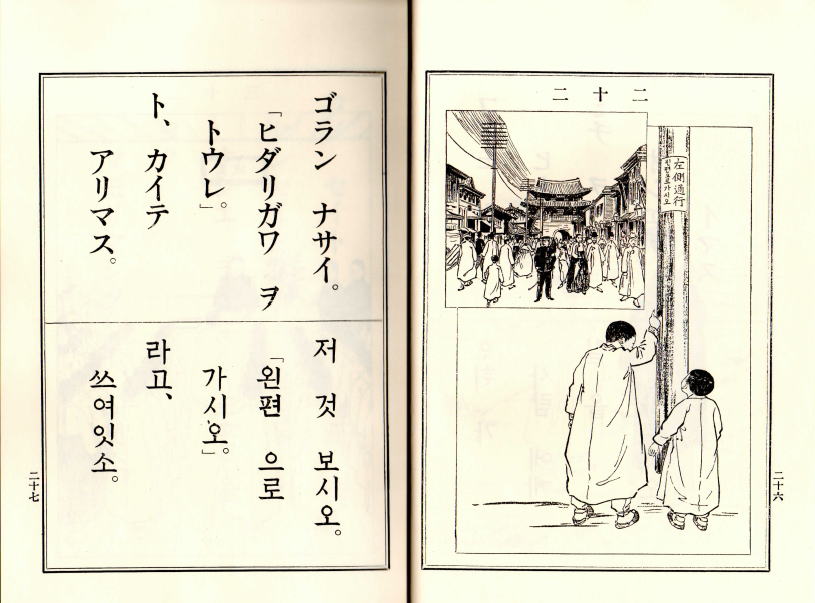 二十二
左側通行
왼편으로가시오
二十六
ゴラン ナサイ。
「ヒダリガワ ヲ
トウレ。」
ト、カイテ
アリマス。
저 것 보시오。
「왼편 으로
가시오。」
라고、
쓰여잇소。
二十七